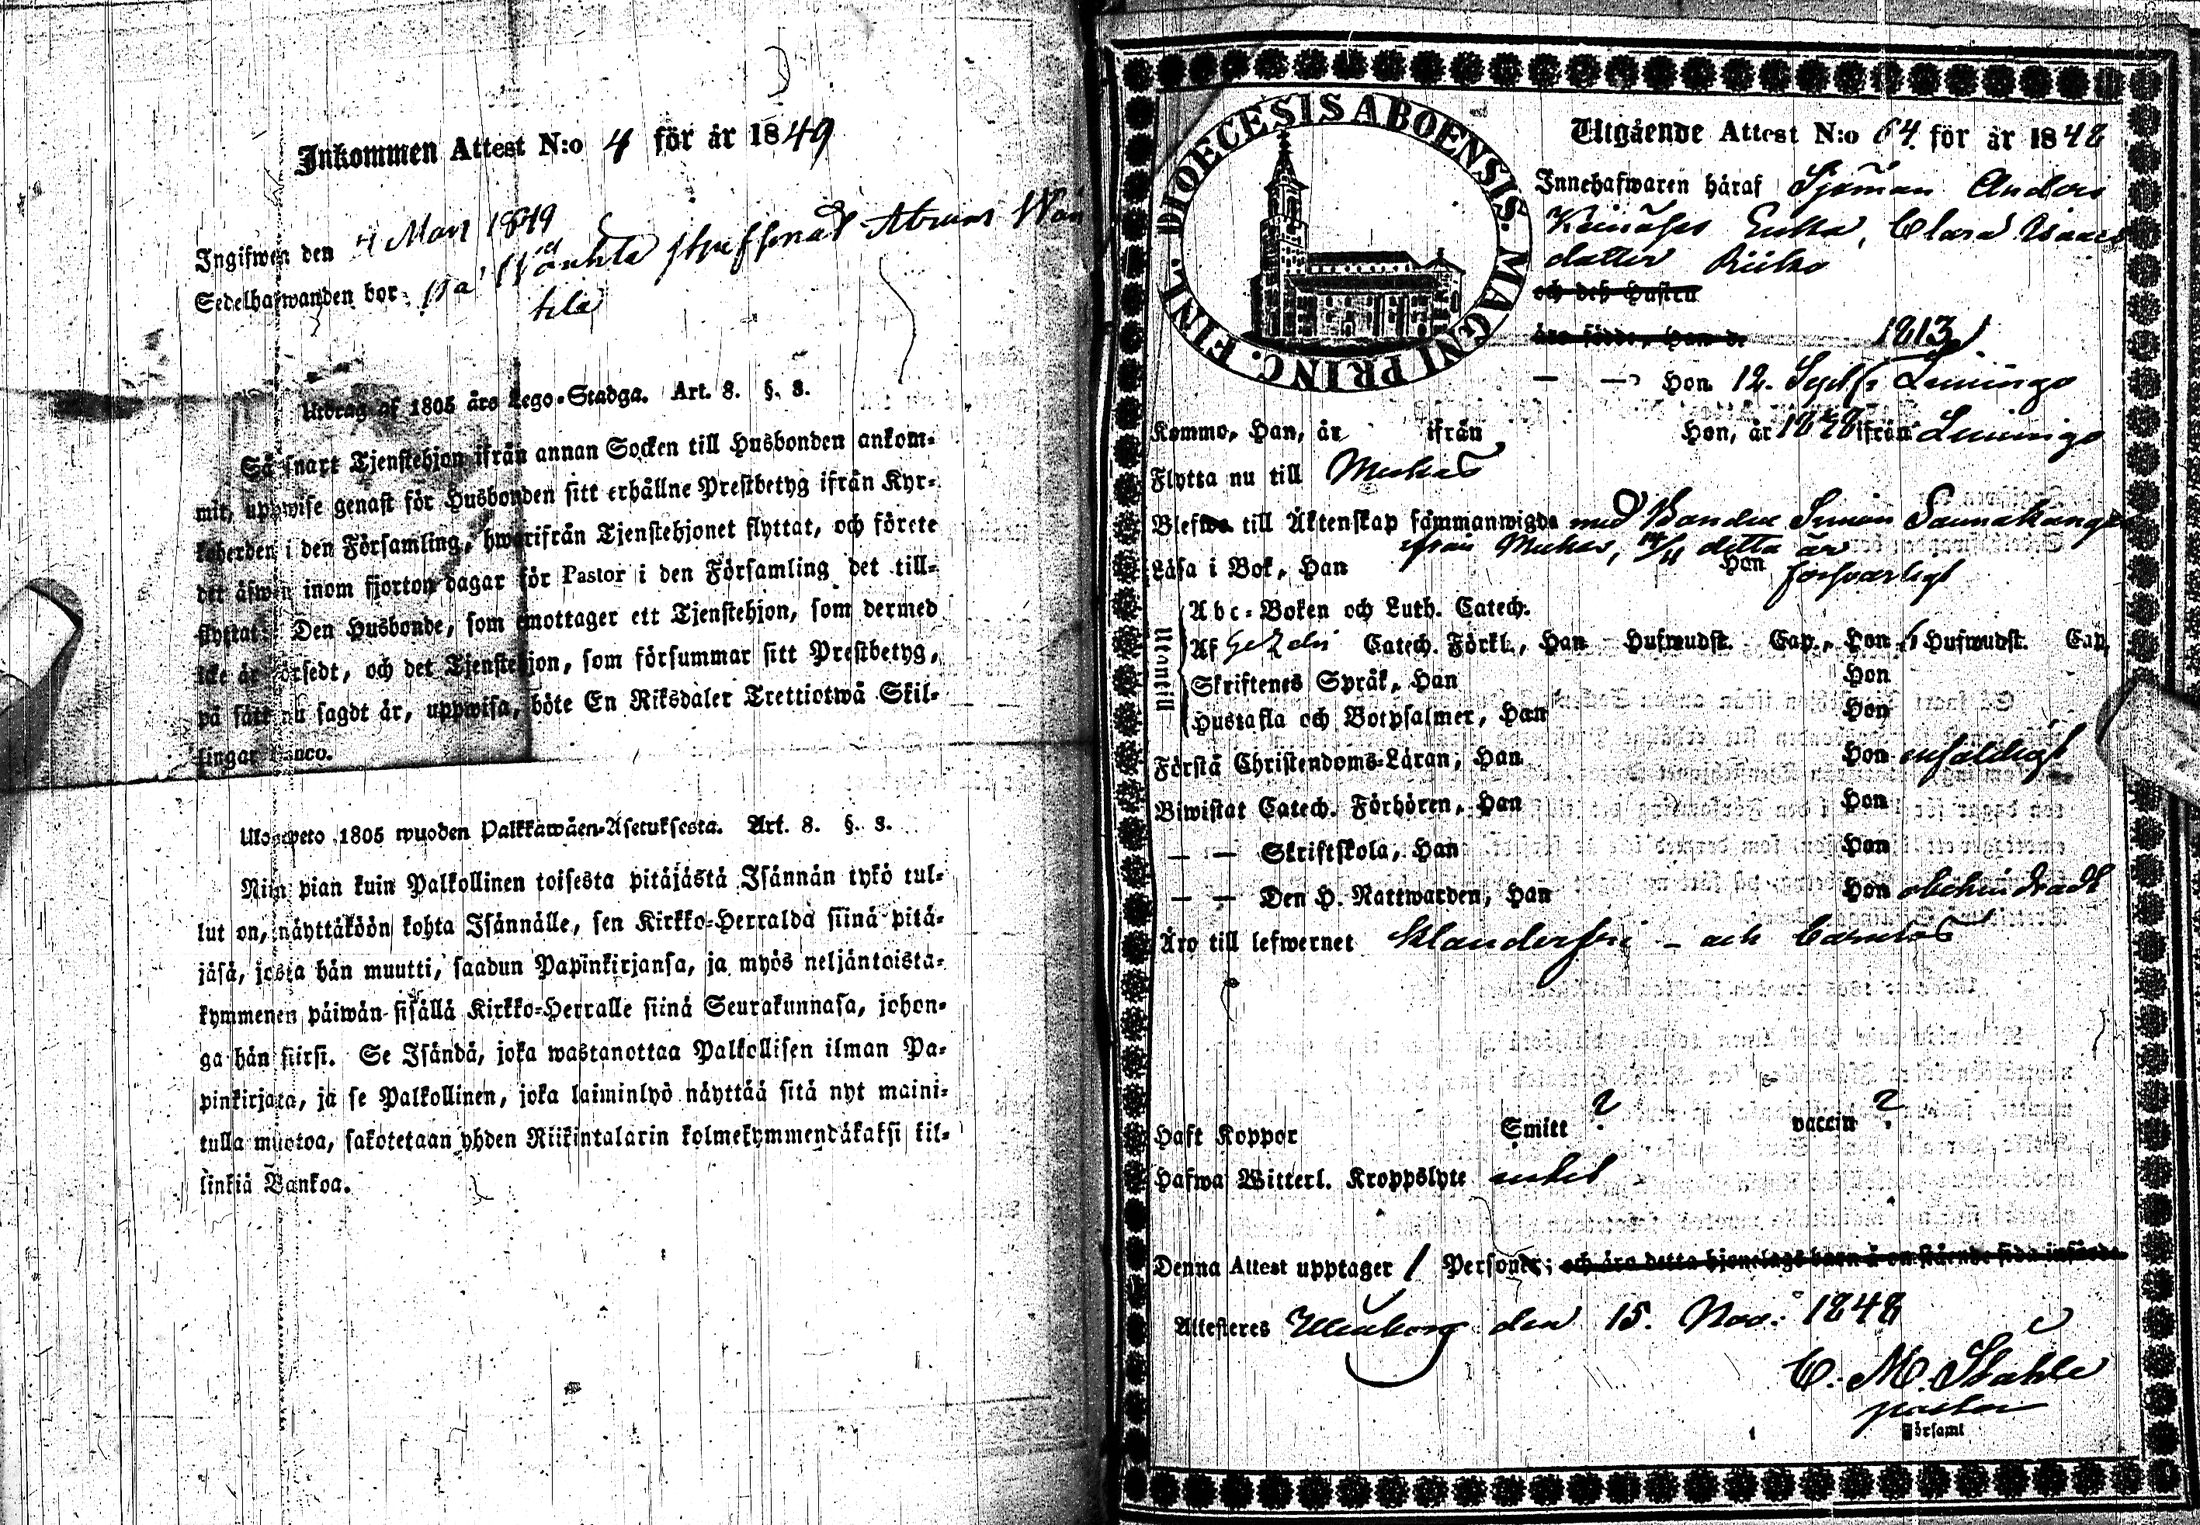 Inkommen Attest N:o 4 för år 1849
Ingifwen den 4 Mars 1849
Sedelhafwanden bor på
tila
Utdrag af 1805 års Lego-Stadga. Art. 8. §. 3.
Så snart Tjenstehjon ifrån annan Socken till Husbonden ankom-
mit, uppwise genast för Husbonden sitt erhållne Prestbetyg ifrån Kyr-
koherden i den Församling, hwarifrån Tjenstehjonet flyttat, och förete
det äfwen inom fjorton dagar för Pastor i den Församling det till-
flyttat. Den Husbonde, som emottager ett Tjenstehjon, som dermed
icke är försedt, och det Tjenstehjon, som försummar sitt Prestbetyg,
på sätt nu sagdt är, uppwisa, böte En Riksdaler Trettiotwå Skil-
lingar Banco.
Ulosweto 1805 wuoden Palkkawäen-Asetuksesta. Art. 8. §. 3.
Niin pian kuin Palkollinen toisesta pitäjästä Isännän tykö tul-
lut on, näyttäköön kohta Isännälle, sen Kirkko-Herralda siinä pitä-
jäsä, josta hän muutti, saadun Papinkirjansa, ja myös neljäntoista-
kymmenen päiwän sisällä Kirkko-Herralle siinä Seurakunnasa, johon-
ga hän siirsi. Se Isändä, joka wastanottaa Palkollisen ilman Pa-
pinkirjata, ja se Palkollinen, joka laiminlyö näyttää sitä nyt maini-
tulla muotoa, sakotetaan yhden Riikintalarin kolmekymmendäkaksi kil-
linkiä Bankoa.
DIOECESIS ABOENSIS. MAGNI PRINC. FINL.
Utgående Attest N:o 64 för år 1848
Innehafwaren häraf Sjöman Anders
Enka, Clara Isaacs
dotter Riiko
och deß Hustru
äro födde, Han d. 1813
— — Hon 12. Sept. Limingo
Kommo, Han, år ifrån Hon, år 1828 ifrån Limingo
Flytta nu till Muhos
Blefwo till Äktenskap sammanwigde med Bonden Simon Saunakangas
ifrån Muhos, 14/11 detta år
Läsa i Bok, Han Hon försvarligt
Utantill
Abc-Boken och Luth. Catech.
Af Catech. Förkl., Han Hufwudst. Cap., Hon 6 Hufwudst. Cap.
Skriftenes Språk, Han Hon
Hustafla och Botpsalmer, Han Hon
Förstå Christendoms-Läran, Han Hon enfaldigt
Biwistat Catech. Förhören, Han Hon
— — Skriftskola, Han Hon
— — Den H. Nattwarden, Han Hon obehindradt
Äro till lefwernet klanderfri - och
Haft Koppor Smitt ? vaccin ?
Hafwa Witterl. Kroppslyte
Denna Attest upptager 1 Person; och äro detta hjonelags barn å omstående sida införde
Attesteras Uleåborg den 15. Nov. 1848
C. M. Stahle
pastor
Församl